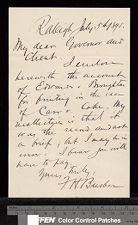 Raleigh, July 5th 1895.
My dear Governor and
Client: I enclose
herewith the account
of Edwards & Broughton
for printing in the case
of Carr v. Coke. My
recollection is that it
was the second and not
a brief, but I may be in
error. I fear you will
have to pay.
Yours truly,
F. H. Busbee
FEN Color Control Patches